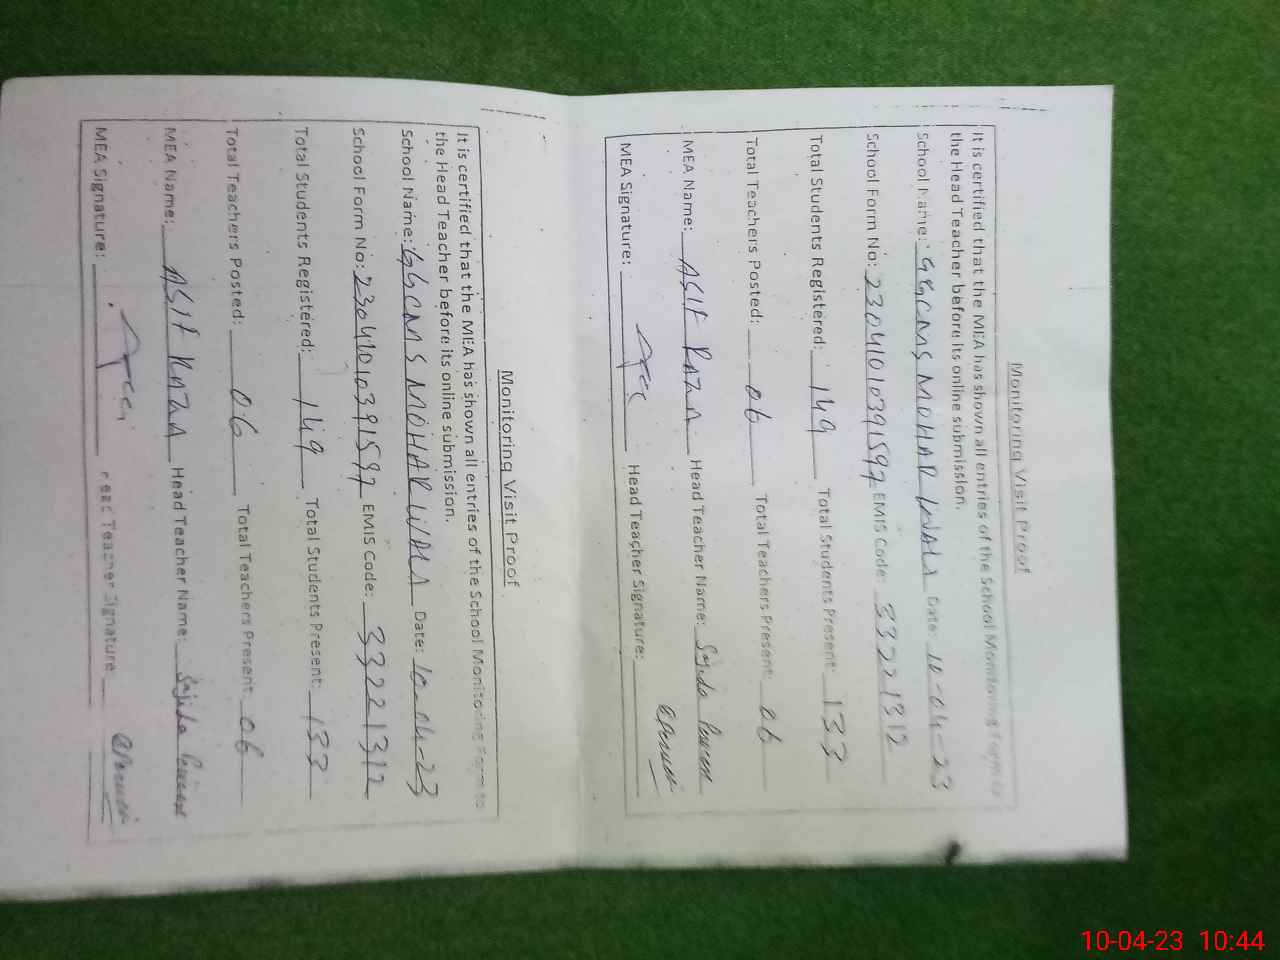 Monitoring Visit Proof
It is certified that the MEA has shown all entries of the School Monitoring Form to
the Head Teacher before its online submission.
School Name: GGCMS MOHAR WALA Date: 10-04-23
School Form No: 23041010391597 EMIS Code: 33221312
Total Students Registered: 149 Total Students Present: 133
Total Teachers Posted: 06 Total Teachers Present: 06
MEA Name: ASIF RAZA Head Teacher Name: Sajida
MEA Signature: Head Teacher Signature:
Monitoring Visit Proof
It is certified that the MEA has shown all entries of the School Monitoring Form to
the Head Teacher before its online submission.
School Name: GGCMS MOHAR WALA Date: 10-04-23
School Form No: 23041010391597 EMIS Code: 33221312
Total Students Registered: 149 Total Students Present: 133
Total Teachers Posted: 06 Total Teachers Present: 06
MEA Name: ASIF RAZA Head Teacher Name: Sajida
MEA Signature: Head Teacher Signature
10-04-23 10:44